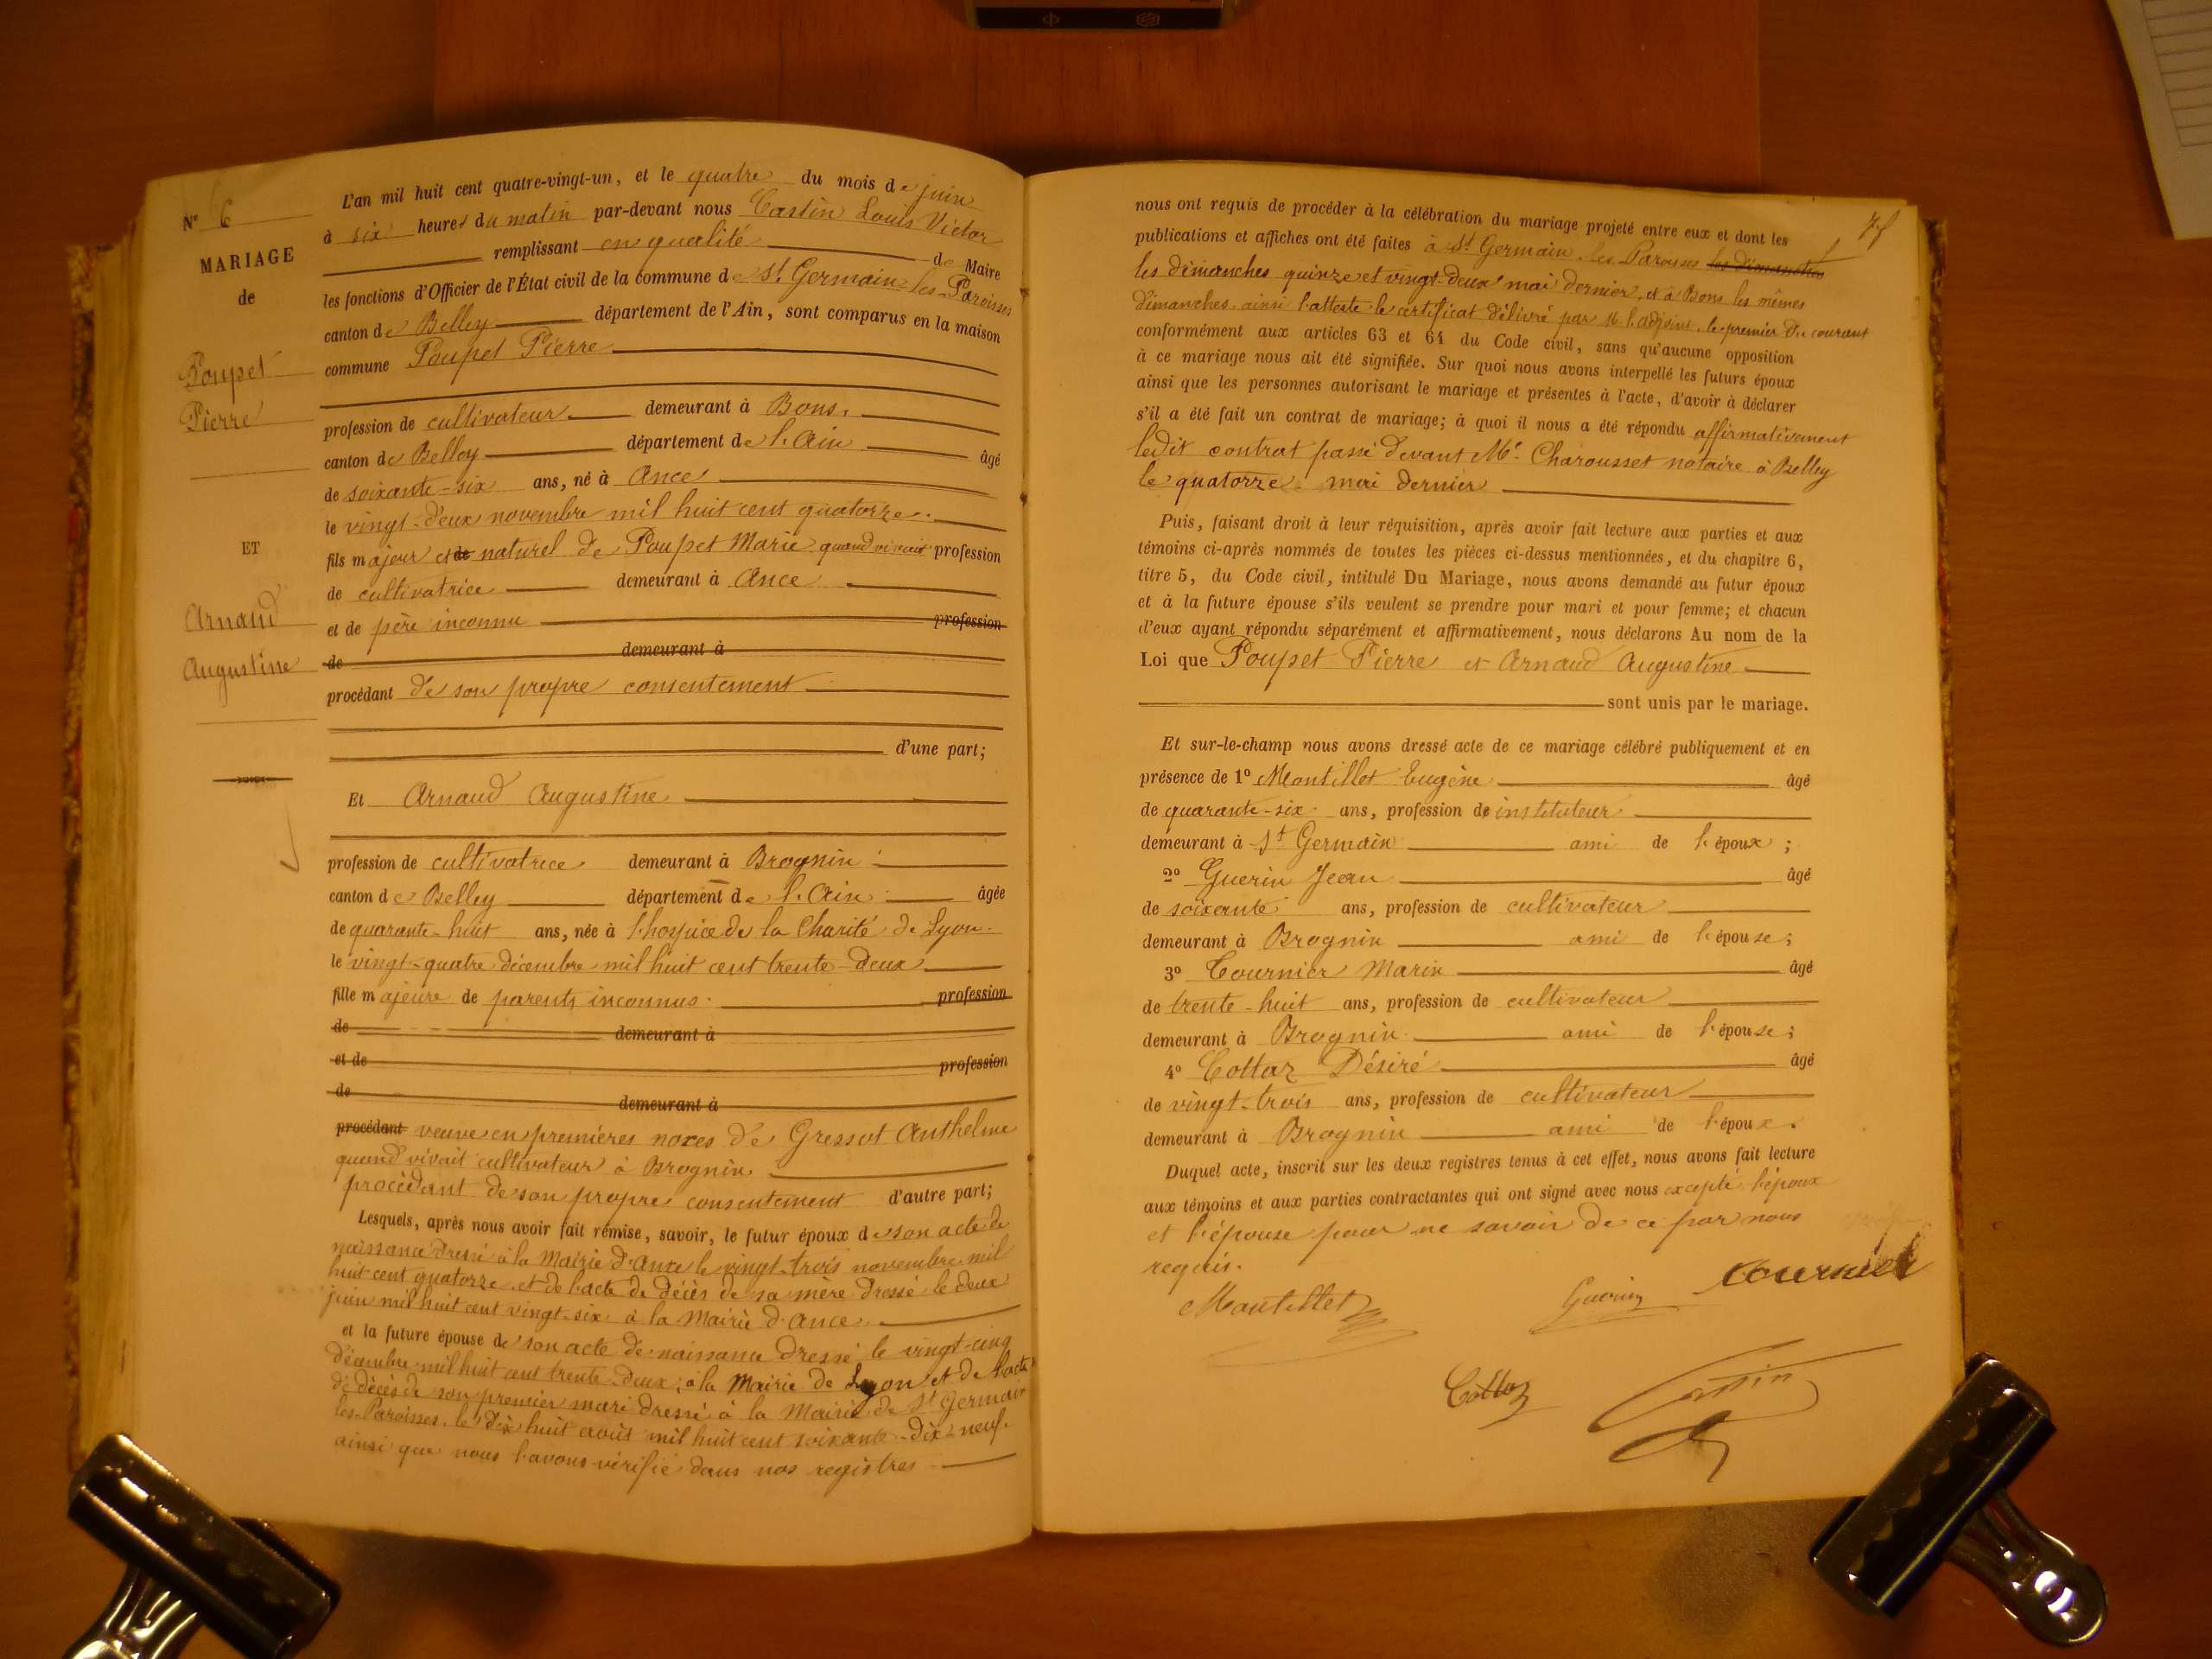 N° 6
MARIAGE
de
Poupet
Pierre
ET
Arnaud
Augustine
L'an mil huit cent quatre-vingt-un, et le quatre du mois de juin
à six heures du matin par-devant nous Castin Louis Victor
remplissant en qualité de Maire
les fonctions d'Officier de l'État civil de la commune de St Germain-les-Paroisses
canton de Belley département de l'Ain, sont comparus en la maison
commune Poupet Pierre
profession de cultivateur demeurant à Bons.
canton de Belley département de l'Ain âgé
de soixante-six ans, né à Ance
le vingt-deux novembre mil huit cent quatorze.
fils majeur et de naturel de Poupet Marie quand vivait profession
de cultivatrice demeurant à Ance
et de père inconnu profession
de demeurant à
procédant de son propre consentement
d'une part;
Et Arnaud Augustine
profession de cultivatrice demeurant à Brognin
canton de Belley département de l'Ain âgée
de quarante-huit ans, née à l'hospice de la Charité de Lyon.
le vingt-quatre décembre mil huit cent trente-deux
fille majeure de parents inconnus. profession
de demeurant à
et de profession
de demeurant à
procédant veuve en premières noces de Gressot Anthelme
quand vivait cultivateur à Brognin
procédant de son propre consentement d'autre part;
Lesquels, après nous avoir fait remise, savoir, le futur époux de son acte de
naissance dressé à la Mairie d'Ance le vingt-trois novembre mil
huit cent quatorze, et de l'acte de décès de sa mère dressé le deux
juin mil huit cent vingt-six à la Mairie d'Ance.
et la future épouse de son acte de naissance dressé le vingt-cinq
décembre mil huit cent trente-deux, à la Mairie de Lyon et de l'acte
de décès de son premier mari dressé à la Mairie de St Germain
les-Paroisses, le dix huit août mil huit cent soixante-dix-neuf.
ainsi que nous l'avons vérifié dans nos registres
nous ont requis de procéder à la célébration du mariage projeté entre eux et dont les
publications et affiches ont été faites à St Germain-les-Paroisses les dimanches
les dimanches quinze et vingt-deux mai dernier, et à Bons les mêmes
dimanches ainsi l'atteste le certificat délivré par M. l'adjoint, le premier du courant
conformément aux articles 63 et 64 du Code civil, sans qu'aucune opposition
à ce mariage nous ait été signifiée. Sur quoi nous avons interpellé les futurs époux
ainsi que les personnes autorisant le mariage et présentes à l'acte, d'avoir à déclarer
s'il a été fait un contrat de mariage; à quoi il nous a été répondu affirmativement
ledit contrat passé devant Me Charousset notaire à Belley
le quatorze mai dernier
Puis, faisant droit à leur réquisition, après avoir fait lecture aux parties et aux
témoins ci-après nommés de toutes les pièces ci-dessus mentionnées, et du chapitre 6,
titre 5, du Code civil, intitulé Du Mariage, nous avons demandé au futur époux
et à la future épouse s'ils veulent se prendre pour mari et pour femme; et chacun
d'eux ayant répondu séparément et affirmativement, nous déclarons Au nom de la
Loi que Poupet Pierre et Arnaud Augustine
sont unis par le mariage.
Et sur-le-champ nous avons dressé acte de ce mariage célébré publiquement et en
présence de 1° Montillet Eugène âgé
de quarante-six ans, profession de instituteur
demeurant à St Germain ami de l'époux;
2° Guerin Jean âgé
de soixante ans, profession de cultivateur
demeurant à Brognin ami de l'épouse;
3° Cournier Marin âgé
de trente-huit ans, profession de cultivateur
demeurant à Brognin ami de l'épouse;
4° Cottaz Désiré âgé
de vingt-trois ans, profession de cultivateur
demeurant à Brognin ami de l'époux.
Duquel acte, inscrit sur les deux registres tenus à cet effet, nous avons fait lecture
aux témoins et aux parties contractantes qui ont signé avec nous excepté l'époux
et l'épouse pour ne savoir de ce par nous
requis.
Montillet Guerin Cournier
Cottaz Castin